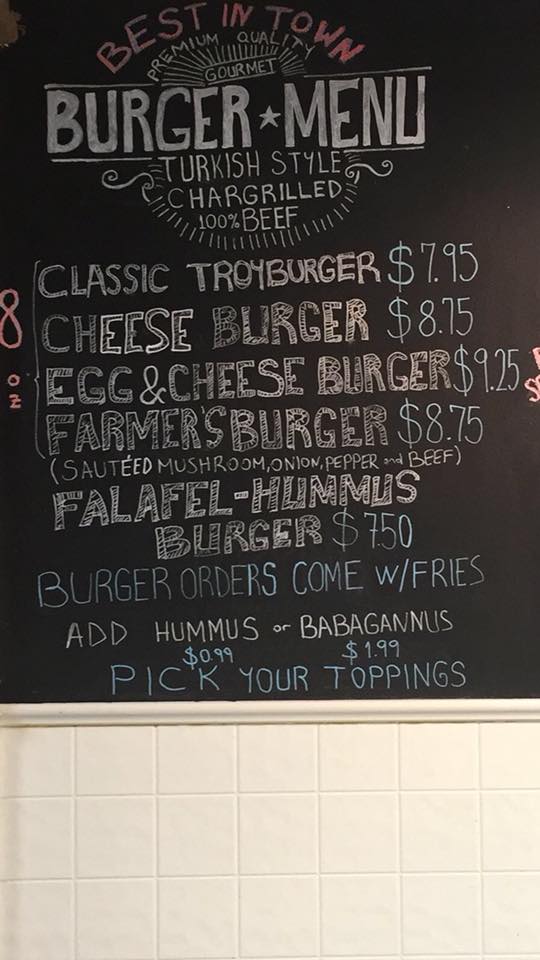 BEST IN TOWN
PREMIUM QUALITY
GOURMET
BURGER ★ MENU
TURKISH STYLE
CHARGRILLED
100% BEEF
8 oz
CLASSIC TROYBURGER $7.95
CHEESE BURGER $8.75
EGG & CHEESE BURGER $9.25
FARMER'S BURGER $8.75
(SAUTÉED MUSHROOM, ONION, PEPPER and BEEF)
FALAFEL-HUMMUS
BURGER $750
BURGER ORDERS COME W/FRIES
ADD HUMMUS or BABAGANNUS
$0.99 $1.99
PICK YOUR TOPPINGS